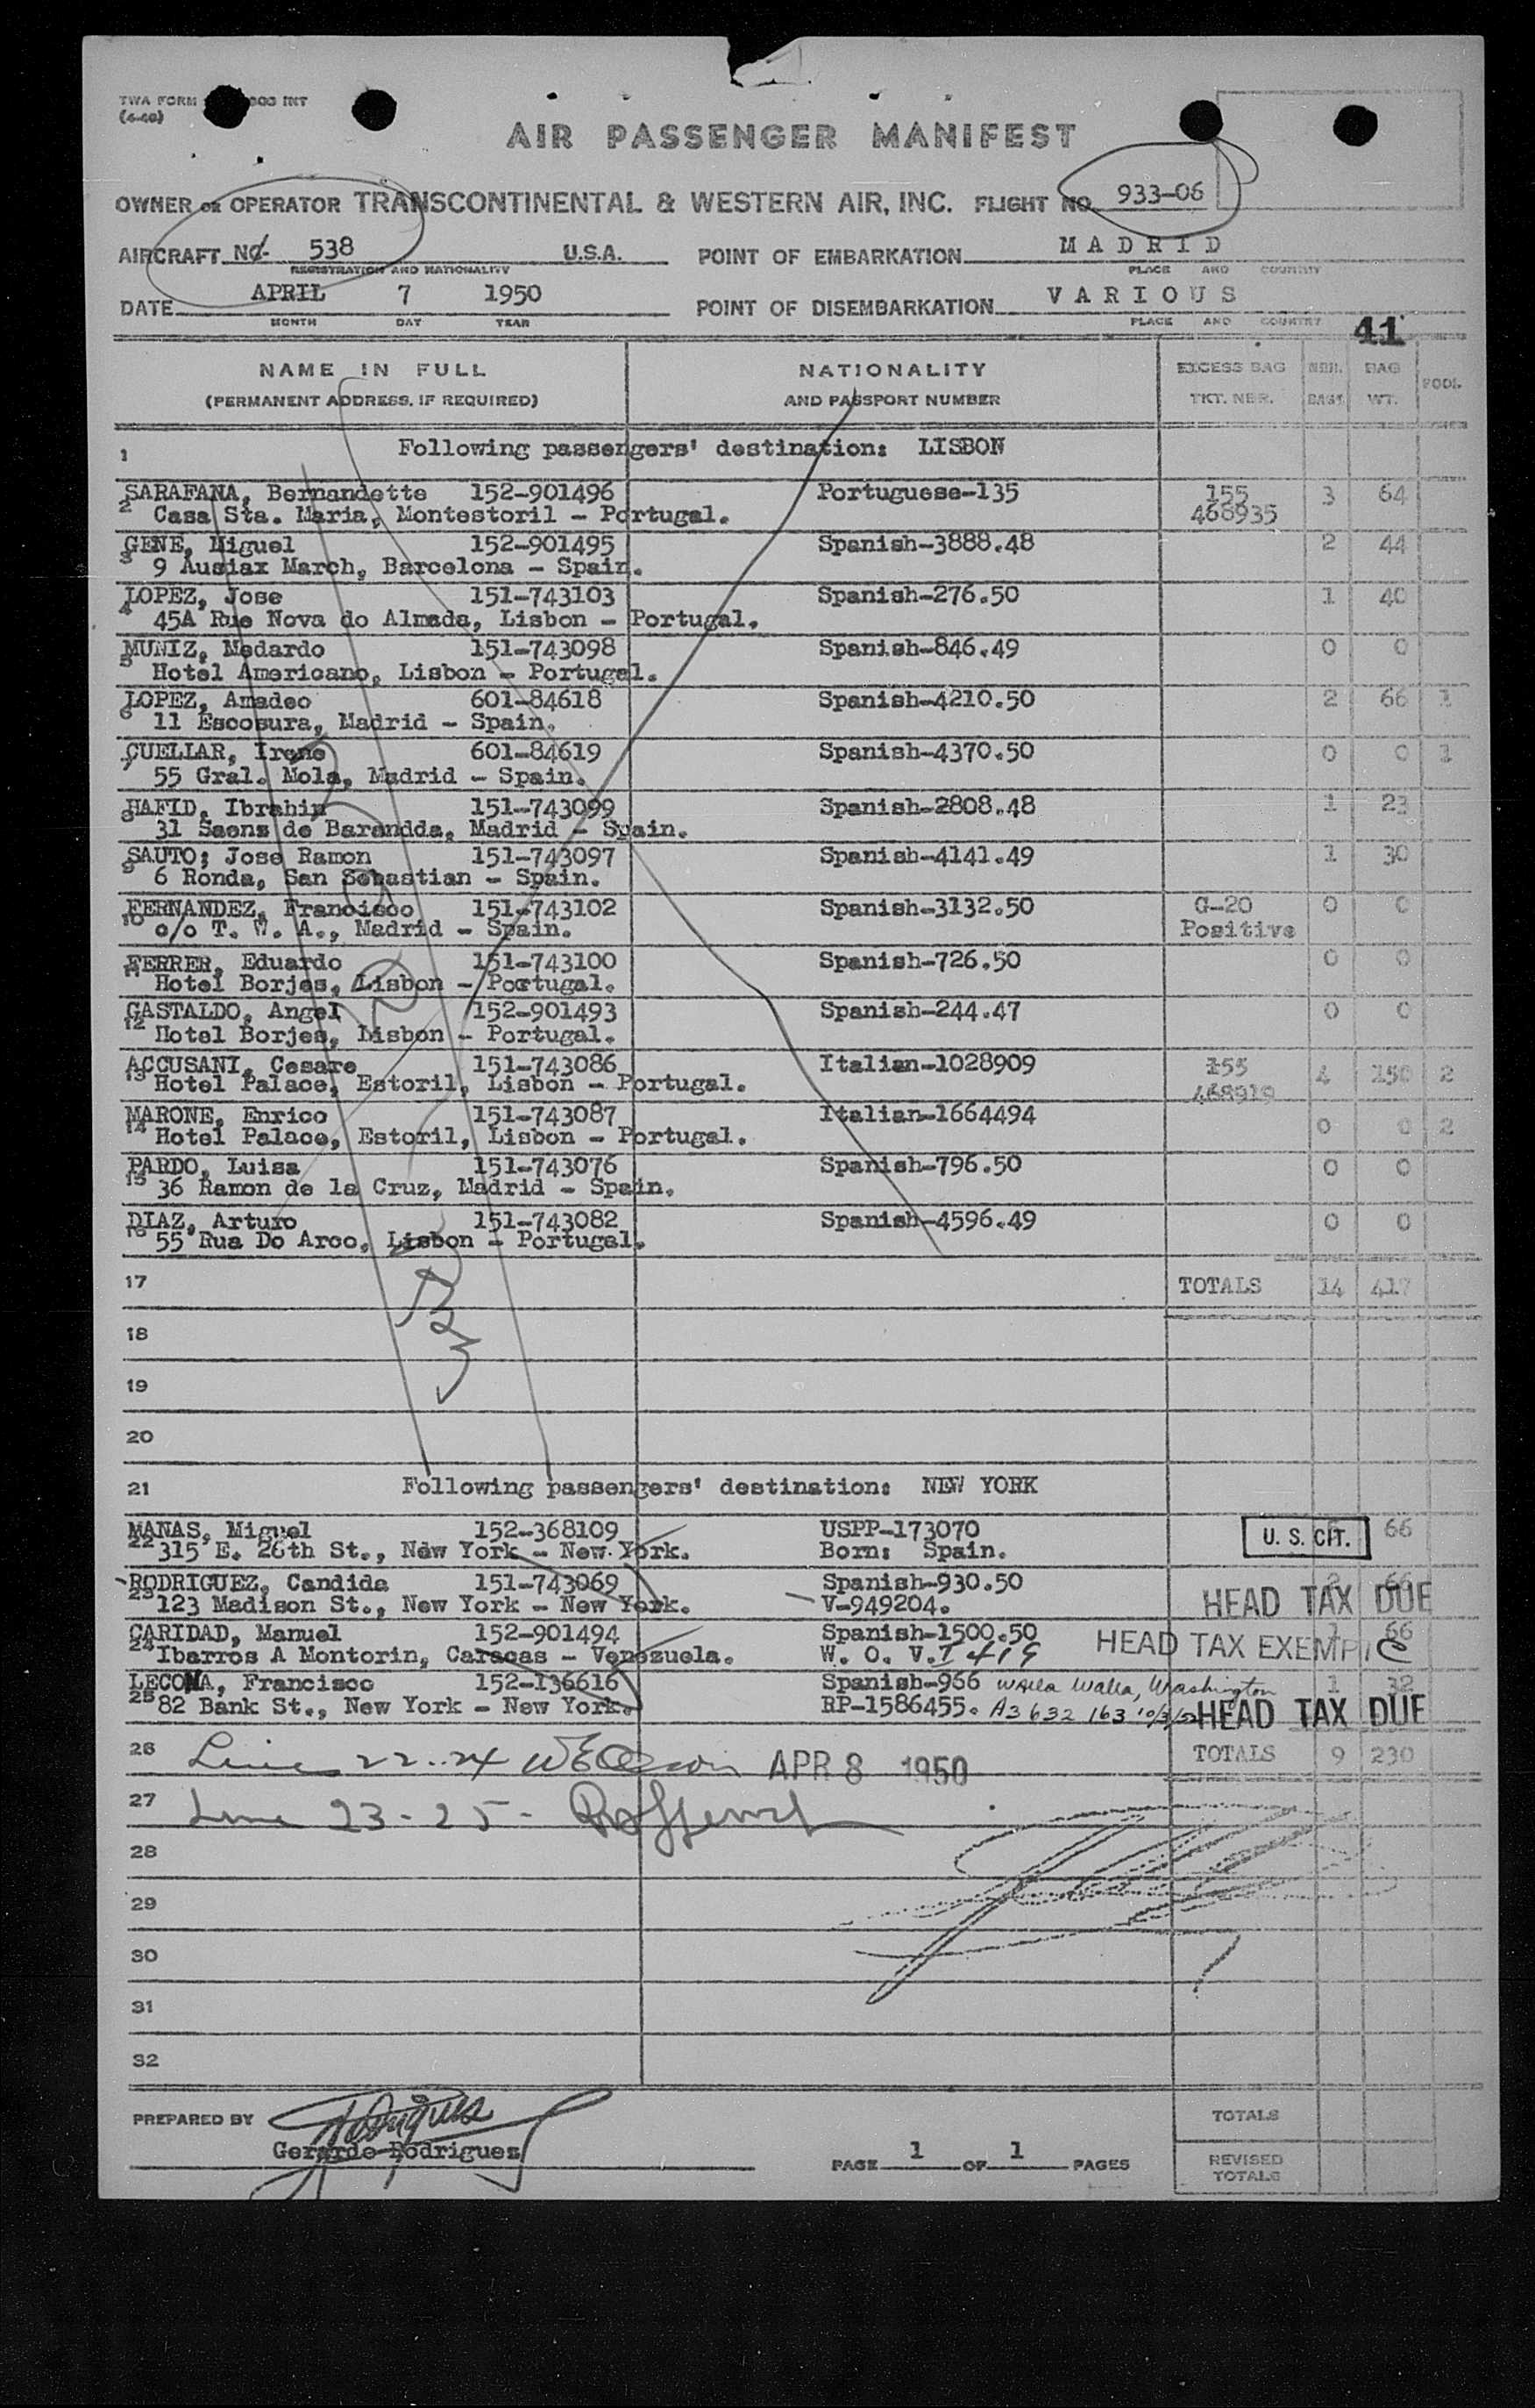 TWA FORM 303 INT
(4-48)
AIR PASSENGER MANIFEST
OWNER OR OPERATOR TRANSCONTINENTAL & WESTERN AIR, INC. FLIGHT NO. 933-06
AIRCRAFT NO. 538 U.S.A. POINT OF EMBARKATION MADRID
REGISTRATION AND NATIONALITY PLACE AND COUNTRY
DATE APRIL 7 1950 POINT OF DISEMBARKATION VARIOUS
MONTH DAY YEAR PLACE AND COUNTRY
41
NAME IN FULL NATIONALITY EXCESS BAG NBR. BAG
(PERMANENT ADDRESS, IF REQUIRED) AND PASSPORT NUMBER TKT. NBR. BAGS. WT. POOL
1 Following passengers' destination: LISBON
SARAFANA, Bernandette 152-901496 Portuguese-135 155 3 64
2 Casa Sta. Maria, Montestoril - Portugal. 468935
GENE, Miguel 152-901495 Spanish-3888.48 2 44
3 9 Ausiax March, Barcelona - Spain.
LOPEZ, Jose 151-743103 Spanish-276.50 1 40
4 45A Rue Nova do Almada, Lisbon - Portugal.
MUNIZ, Medardo 151-743098 Spanish-846.49 0 0
5 Hotel Americano, Lisbon - Portugal.
LOPEZ, Amadeo 601-84618 Spanish-4210.50 2 66 1
6 11 Escosura, Madrid - Spain.
CUELLAR, Irene 601-84619 Spanish-4370.50 0 0 1
7 55 Gral. Mola, Madrid - Spain.
HAFID, Ibrahim 151-743099 Spanish-2808.48 1 23
8 31 Saenz de Barandda, Madrid - Spain.
SAUTO; Jose Ramon 151-743097 Spanish-4141.49 1 30
9 6 Ronda, San Sebastian - Spain.
FERNANDEZ, Francisco 151-743102 Spanish-3132.50 G-20 0 0
10 c/o T. W. A., Madrid - Spain. Positive
FERRER, Eduardo 151-743100 Spanish-726.50 0 0
11 Hotel Borjes, Lisbon - Portugal.
GASTALDO, Angel 152-901493 Spanish-244.47 0 0
12 Hotel Borjes, Lisbon - Portugal.
ACCUSANI, Cesare 151-743086 Italian-1028909 155 4 150 2
13 Hotel Palace, Estoril, Lisbon - Portugal. 468919
MARONE, Enrico 151-743087 Italian-1664494 0 0 2
14 Hotel Palace, Estoril, Lisbon - Portugal.
PARDO, Luisa 151-743076 Spanish-796.50 0 0
15 36 Ramon de la Cruz, Madrid - Spain.
DIAZ, Arturo 151-743082 Spanish-4596.49 0 0
16 55 Rua Do Arco, Lisbon - Portugal.
17 TOTALS 14 417
18
19
20
21 Following passengers' destination: NEW YORK
MANAS, Miguel 152-368109 USPP-173070 U. S. CIT. 66
22 315 E. 26th St., New York - New York. Born: Spain.
RODRIGUEZ, Candida 151-743069 Spanish-930.50 66
23 123 Madison St., New York - New York. V-949204. HEAD TAX DUE
CARIDAD, Manuel 152-901494 Spanish-1500.50 66
24 Ibarros A Montorin, Caracas - Venezuela. W. O. V. I 419 HEAD TAX EXEMPT
LECONA, Francisco 152-136616 Spanish-966 Walla Walla, Washington 1 32
25 82 Bank St., New York - New York. RP-1586455. A3 632 163 HEAD TAX DUE
26 Line 22-24 APR 8 1950 TOTALS 9 230
27 Line 23-25-
28
29
30
31
32
PREPARED BY Gerardo Rodriguez TOTALS
PAGE 1 OF 1 PAGES REVISED TOTALS